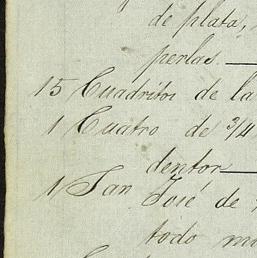 de plata,
perlas.—
15 Cuadritos de la
1 Cuatro de 3/4
dentor—
1 San José de
todo